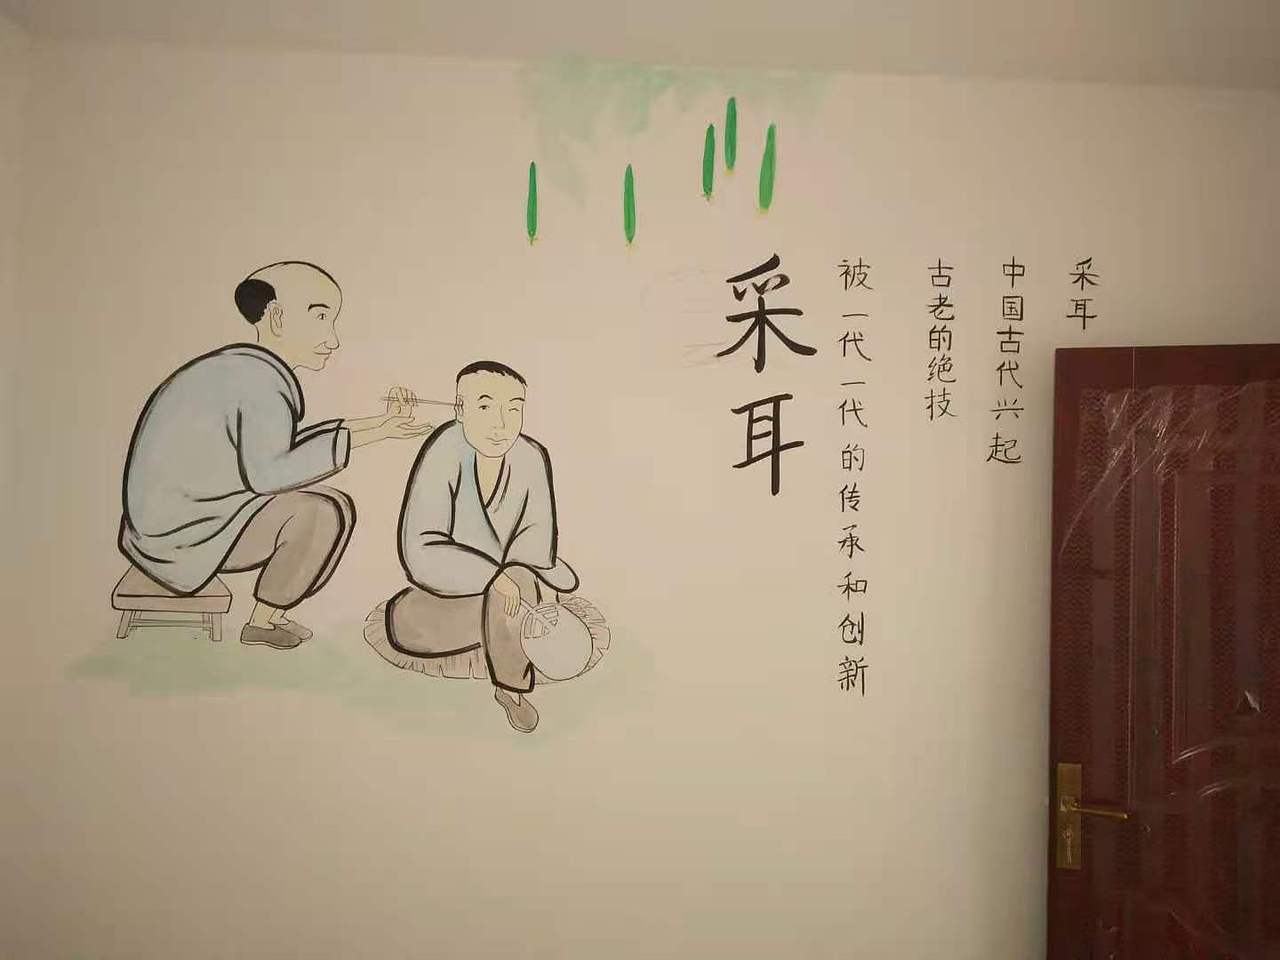 采耳
中国古代兴起
古老的绝技
被一代一代的传承和创新
采耳